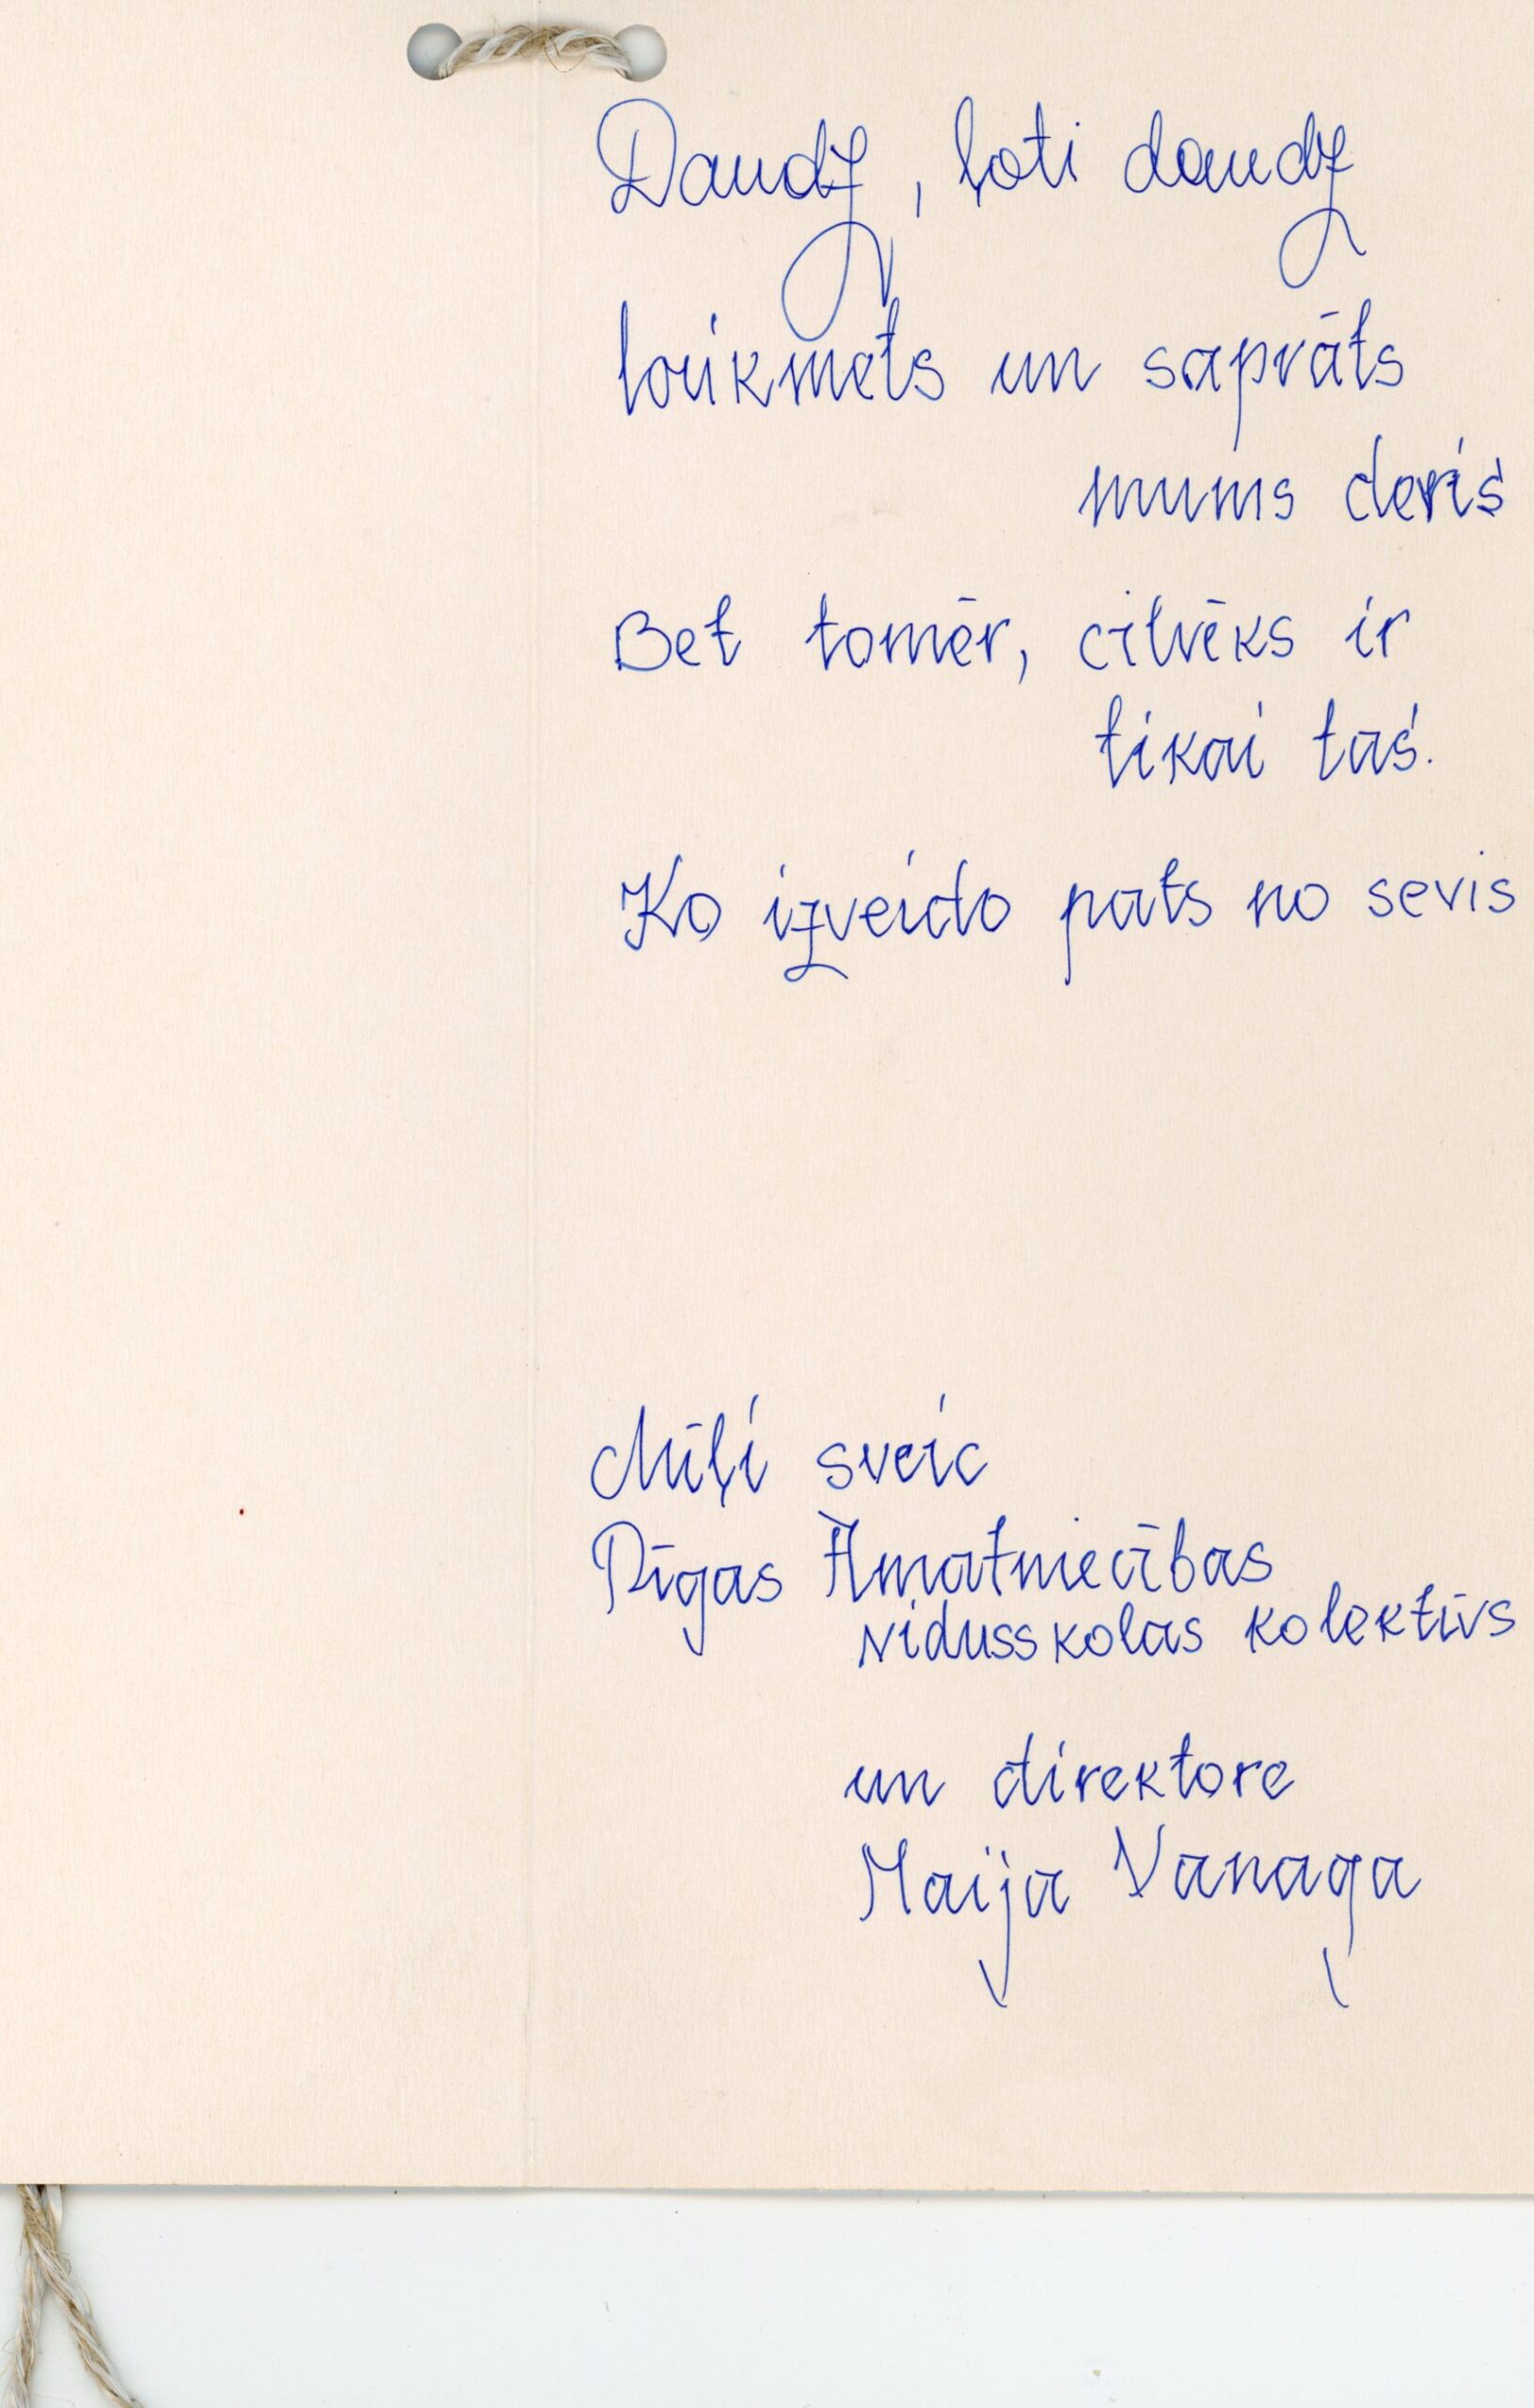 Daudz, ļoti daudz
laikmets un saprāts
mums devis
Bet tomēr, cilvēks ir
tikai tas.
Ko izveido pats no sevis
Mīļi sveic
Rīgas Amatniecības
vidusskolas kolektīvs
un direktore
Maija Vanaga